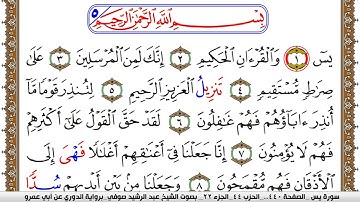 بِسْمِ اللَّهِ الرَّحْمَٰنِ الرَّحِيمِ
يسٓ ١ وَالْقُرْءَانِ الْحَكِيمِ ٢ إِنَّكَ لَمِنَ الْمُرْسَلِينَ ٣ عَلَىٰ
صِرَٰطٍ مُّسْتَقِيمٍ ٤ تَنزِيلُ الْعَزِيزِ الرَّحِيمِ ٥ لِتُنذِرَ قَوْمًا مَّا
أُنذِرَ ءَابَآؤُهُمْ فَهُمْ غَٰفِلُونَ ٦ لَقَدْ حَقَّ الْقَوْلُ عَلَىٰٓ أَكْثَرِهِمْ
فَهُمْ لَا يُؤْمِنُونَ ٧ إِنَّا جَعَلْنَا فِىٓ أَعْنَٰقِهِمْ أَغْلَٰلًا فَهْىَ إِلَى
الْأَذْقَانِ فَهُم مُّقْمَحُونَ ٨ وَجَعَلْنَا مِنۢ بَيْنِ أَيْدِيهِمْ سُدًّا
سورة يس الصفحة ٤٤٠.. الحزب ٤٤ الجزء ٢٢ بصوت الشيخ عبد الرشيد صوفي برواية الدوري عن أبي عمرو